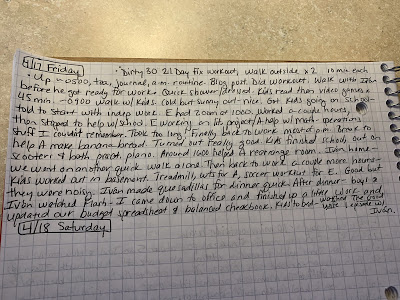 4/17 Friday
· Dirty 30 21 Day fix workout, walk outside x2 10 min each
· Up ~0500, tea, journal, a.m. routine. Blog post. Did workout. Walk with Iván
before he got ready for work. Quick shower/dressed. Kids read then video games x
45 min. ~0900 walk w/ kids. Cold but sunny out - nice. Got kids going on school-
told to start with indep. work. E had zoom at 1000. Worked a couple hours,
then stopped to help w/ school. E working on lit project/A help w/ math - operations
stuff I couldn't remember. Took too long! Finally back to work most of pm. Break to
help A make banana bread. Turned out really good. Kids finished school, out on
scooters & both pract. piano. Around 1600 helped A rearrange room. Iván home -
we went on another quick walk alone. Then back to work a couple more hours -
kids worked out in basement. Treadmill, wts for A, soccer workout for E. Good but
they were noisy. Iván made quesadillas for dinner quick. After dinner - boys &
Iván watched Flash - I came down to office and finished up a little work and
updated our budget spreadsheet & balanced checkbook. Kids to bed - watched The
1 episode w/
Iván.
4/18 Saturday